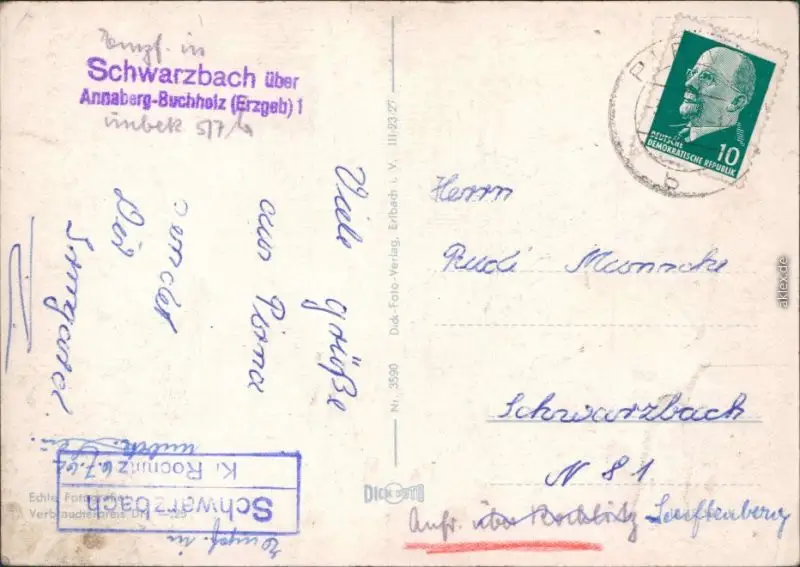 Empf. in
Schwarzbach über
Annaberg-Buchholz (Erzgeb) 1
unbek 5/7
Viele Grüße
aus Pirna
sendet
Dir
Irmgard.
Herrn
Rudi
Schwarzbach
N 81
Anfr. über Rochlitz Senftenberg
DEUTSCHE
DEMOKRATISCHE REPUBLIK
10
PIR
b
Nr. 3590 Dick-Foto-Verlag, Erlbach i. V. III-23-27
DICK FOTO
Echte Fotografie
Verbraucherpreis DM
Empf. in
Schwarzbach
K. Rochlitz 6.7.62
unbek.
aklex.de